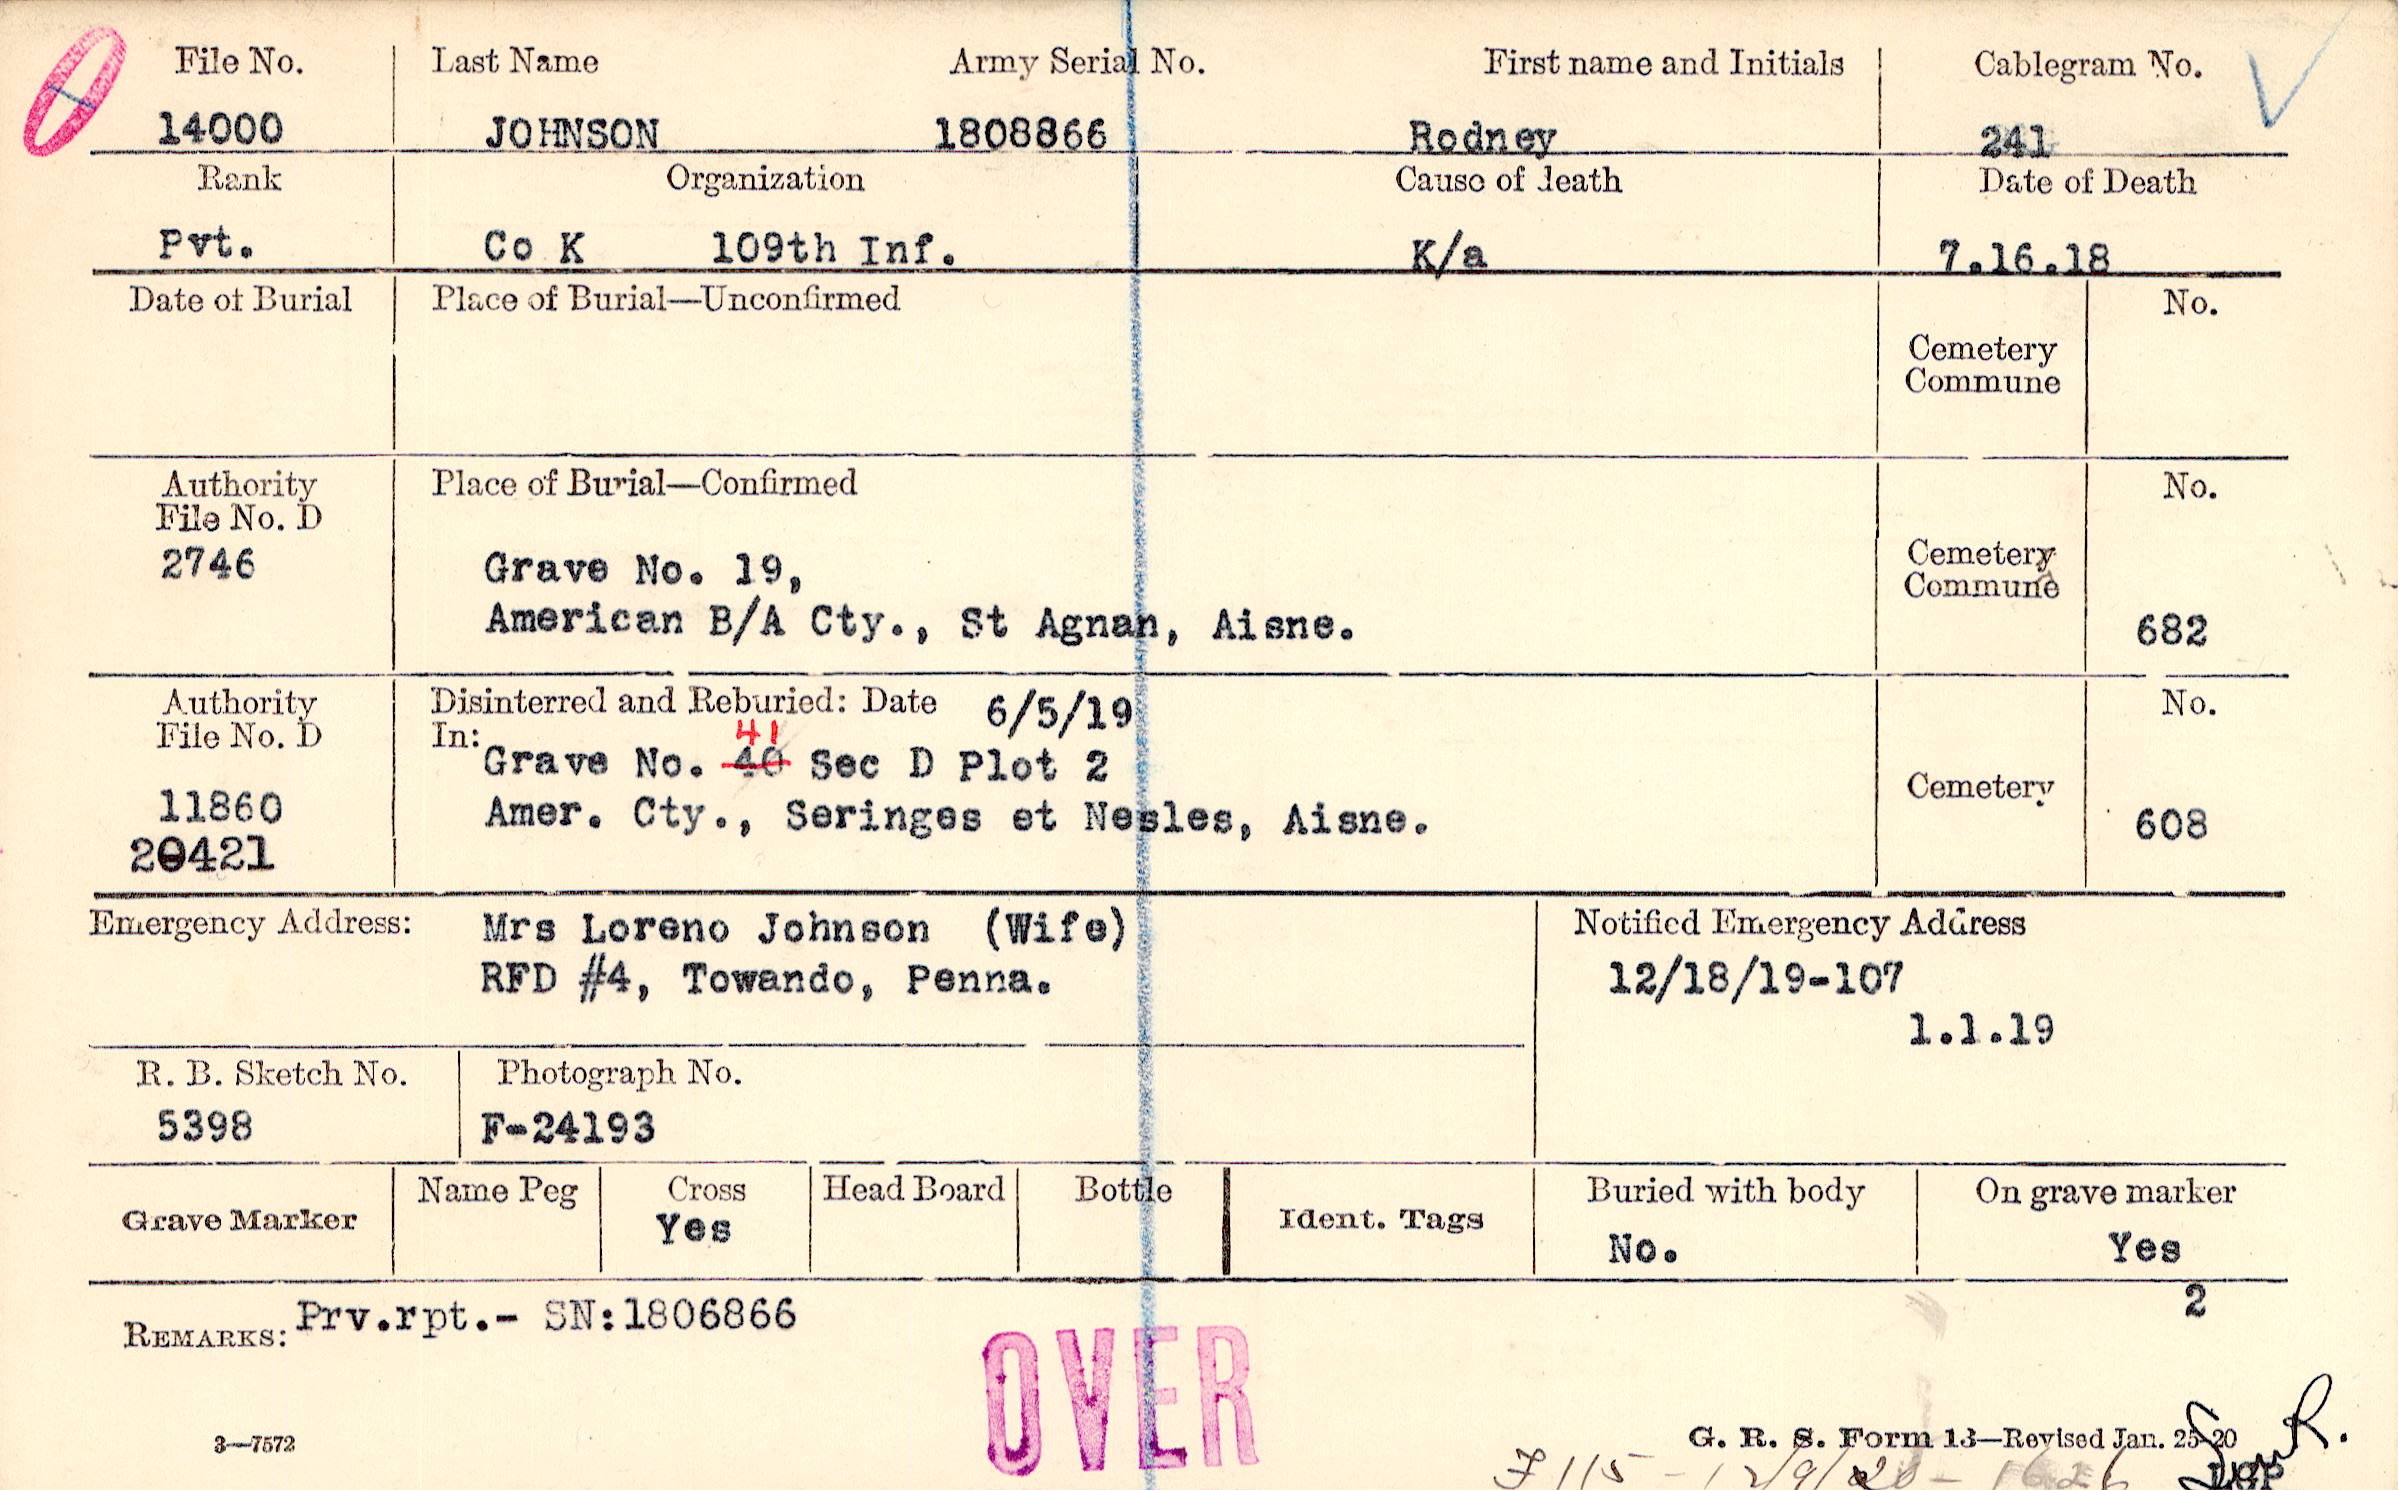 File No. Last Name Army Serial No. First name and Initials Cablegram No.
14000 JOHNSON 1808866 Rodney 241
Rank Organization Cause of death Date of Death
Pvt. Co K 109th Inf. K/a 7.16.18
Date of Burial Place of Burial—Unconfirmed No.
Cemetery
Commune
Authority Place of Burial—Confirmed No.
File No. D
2746 Grave No. 19, Cemetery
Commune
American B/A Cty., St Agnan, Aisne. 682
Authority Disinterred and Reburied: Date 6/5/19 No.
File No. D In: 41
Grave No. 40 Sec D Plot 2
Cemetery
11860 Amer. Cty., Seringes et Nesles, Aisne. 608
20421
Emergency Address: Mrs Loreno Johnson (Wife) Notified Emergency Address
RFD #4, Towando, Penna. 12/18/19-107
1.1.19
R. B. Sketch No. Photograph No.
5398 F-24193
Grave Marker Name Peg Cross Head Board Bottle Ident. Tags Buried with body On grave marker
Yes No. Yes
2
REMARKS: Prv.rpt.- SN:1806866
OVER
3—7572 G. R. S. Form 13—Revised Jan. 25-20
F 115 - 12/9/20 - 1626